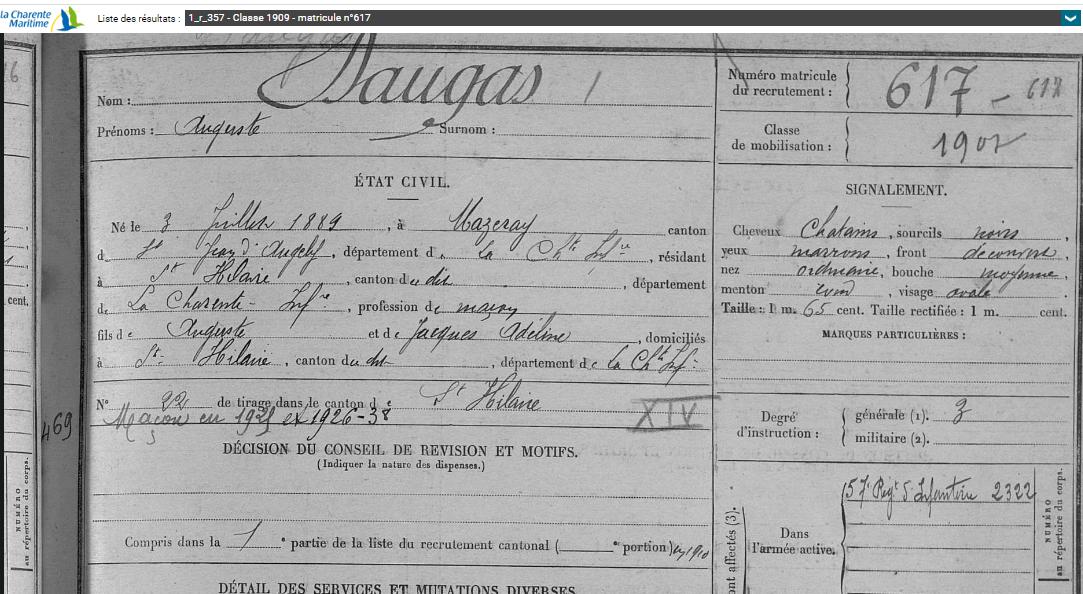 la Charente
Maritime
Liste des résultats : 1_r_357 - Classe 1909 - matricule n°617
Nom : Daugas
Prénoms : Auguste Surnom :
Numéro matricule
du recrutement : 617 - 617
Classe
de mobilisation : 1907
ÉTAT CIVIL.
Né le 3 Juillet 1889, à Mazeray canton
d St Jean d'Angely, département de la Ch^te Inf^re, résidant
à St Hilaire, canton du dit, département
de La Charente-Inf^re, profession de maçon
fils de Auguste et de Jacques Adeline, domiciliés
à St Hilaire, canton du dit, département de la Ch^te Inf^re
N° 22 de tirage dans le canton de St Hilaire
Maçon en 1925 et 1926-38
XIV
469
SIGNALEMENT.
Cheveux Chatains, sourcils noirs,
yeux marrons, front découvert,
nez ordinaire, bouche moyenne,
menton rond, visage ovale.
Taille : 1 m. 65 cent. Taille rectifiée : 1 m. cent.
MARQUES PARTICULIÈRES :
Degré
d'instruction :
générale (1). 3
militaire (2).
DÉCISION DU CONSEIL DE REVISION ET MOTIFS.
(Indiquer la nature des dispenses.)
Compris dans la 1e partie de la liste du recrutement cantonal ( e portion)
DÉTAIL DES SERVICES ET MUTATIONS DIVERSES
Dans
l'armée active.
57e Regt d'Infanterie 2322
NUMÉRO
au répertoire du corps.
cent.
NUMÉRO
au répertoire du corps.
ont affectés (3).